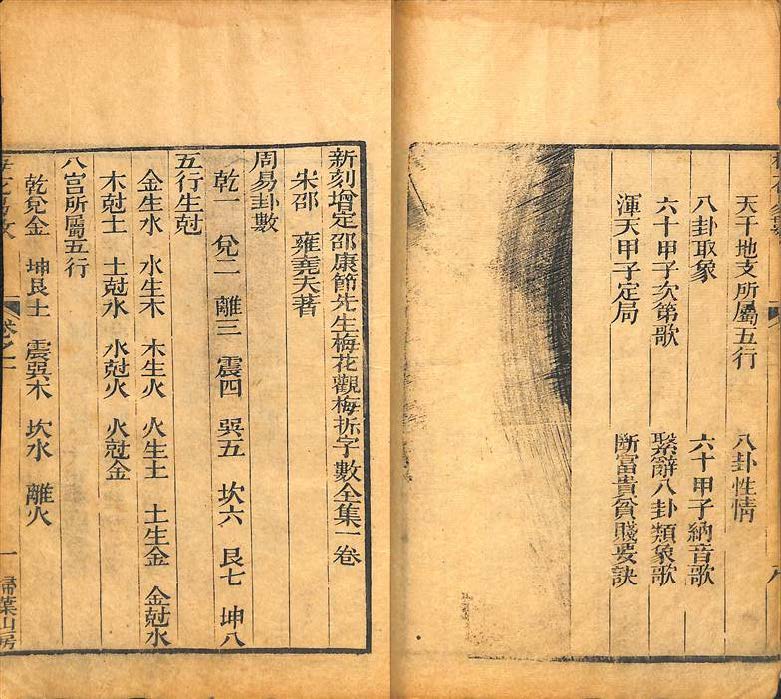 天干地支所屬五行 八卦性情
八卦取象 六十甲子納音歌
六十甲子次第歌 繫辭八卦類象歌
渾天甲子定局 斷富貴貧賤要訣
新刻增定邵康節先生梅花觀梅拆字數全集一卷
宋邵 雍堯夫著
周易卦數
乾一 兌二 離三 震四 巽五 坎六 艮七 坤八
五行生尅
金生水 水生木 木生火 火生土 土生金 金尅木
木尅土 土尅水 水尅火 火尅金
八宮所屬五行
乾兌金 坤艮土 震巽木 坎水 離火
一 掃葉山房